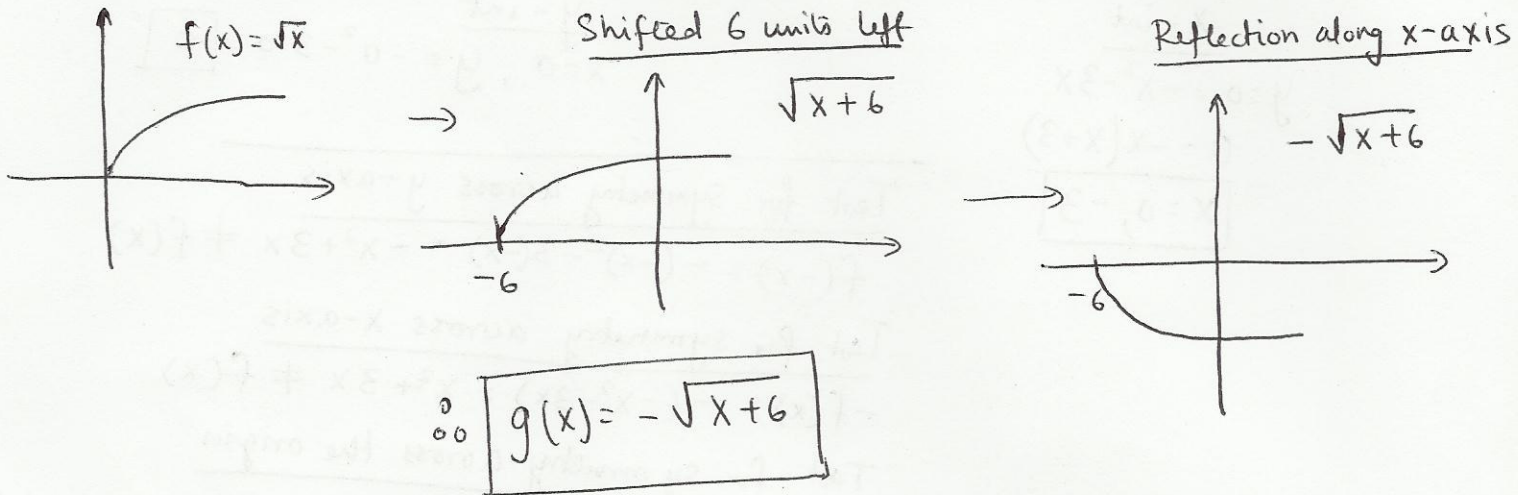 f(x) = √x
→
Shifted 6 units left
√x+6
-6
→
Reflection along x-axis
- √x+6
-6
∴ g(x) = - √x+6